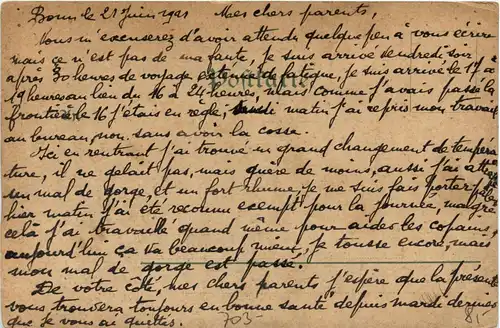 Bonn le 21 Juin 1921 Mes chers parents,
Vous m'excuserez d'avoir attendu quelque peu à vous écrire
mais ce n'est pas de ma faute, je suis arrivé vendredi soir
après 30 heures de voyage exténué de fatigue, je suis arrivé le 17 à
19 heures au lieu du 16 à 24 heures, mais comme j'avais passé la
Postkarte
frontière le 16 j'étais en règle; lundi matin j'ai repris mon travail
au bureau, non sans avoir la cosse.
Ici en rentrant j'ai trouvé un grand changement de tempera
ture, il ne gelait pas, mais guère de moins, aussi j'ai attrapé
un mal de gorge, et un fort rhume, je me suis fais porter pâle
hier matin j'ai été reconnu exempt pour la journée, malgré
cela j'ai travaillé quand même pour aider les copains,
aujourd'hui ça va beaucoup mieux, je tousse encore, mais
mon mal de gorge est passé.
De votre côté, mes chers parents j'espère que la présente
vous trouvera toujours en bonne santé depuis mardi dernier
que je vous ai quittés. 703- 8,-